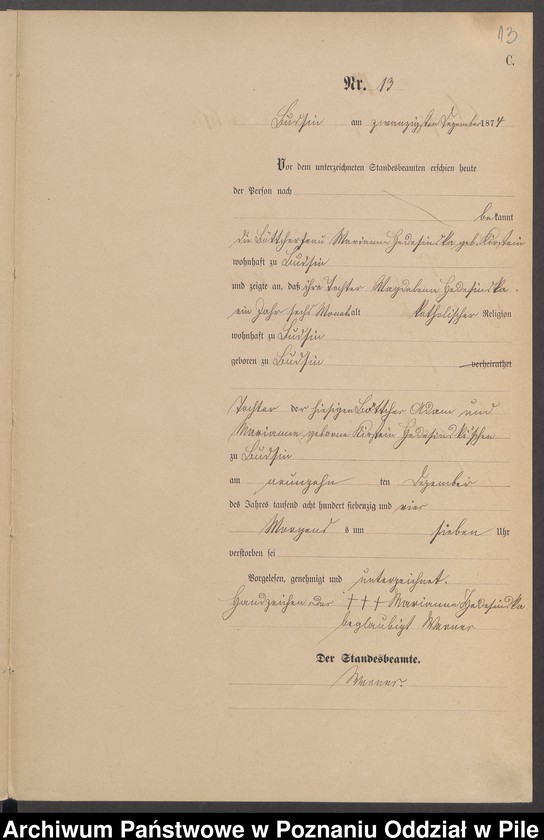 13
C.
Nr. 13
Budsin am zwanzigsten Dezember 1874
Vor dem unterzeichneten Standesbeamten erschien heute
der Person nach
bekannt
die Böttcherfrau Marianna Hedesinska geb. Kirstein
wohnhaft zu Budsin
und zeigte an, daß ihre Tochter Magdalena Hedesinska
ein Jahr sechs Monat alt katholischer Religion
wohnhaft zu Budsin
geboren zu Budsin verheirathet
Tochter der hiesigen Böttcher Adam und
Marianna geborne Kirstein Hedesinskischen
zu Budsin
am neunzehn ten Dezember
des Jahres tausend acht hundert siebenzig und vier
Morgens um sieben Uhr
verstorben sei
Vorgelesen, genehmigt und unterzeichnet.
Handzeichen der +++ Marianna Hedesinska
beglaubigt Werner
Der Standesbeamte.
Werner.
Archiwum Państwowe w Poznaniu Oddział w Pile